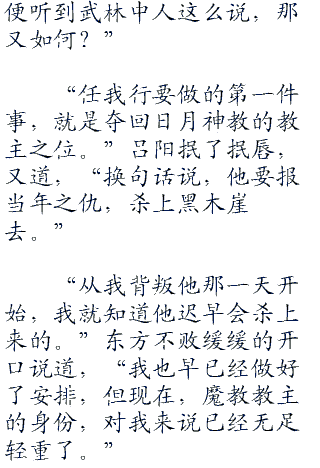 便听到武林中人这么说，那
又如何？”
“任我行要做的第一件
事，就是夺回日月神教的教
主之位。”吕阳抿了抿唇，
又道，“换句话说，他要报
当年之仇，杀上黑木崖
去。”
“从我背叛他那一天开
始，我就知道他迟早会杀上
来的。”东方不败缓缓的开
口说道，“我也早已经做好
了安排，但现在，魔教教主
的身份，对我来说已经无足
轻重了。”